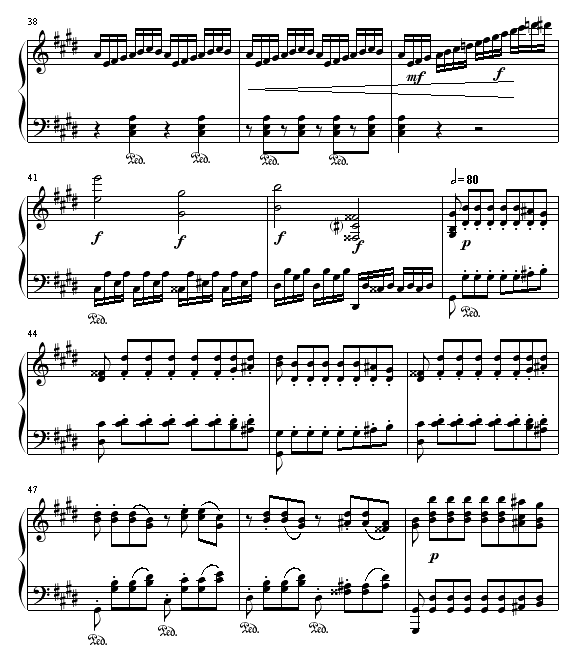 38
mf f
Ped. Ped. Ped. Ped.
41
= 80
f f f f p
Ped. Ped.
44
47
p
Ped. Ped. Ped. Ped.